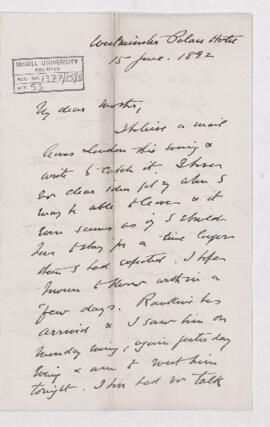 Westminster Palace Hotel
15 June. 1892
McGILL UNIVERSITY
ARCHIVES
ACC. NO. 1377/15/
REF. 53
My dear Mother,
I believe a mail
leaves London this evening &
write to catch it. I have
no clear idea yet of when I
may be able to leave & it
now seems as if I should
have to stay for a time longer
than I had expected. I hope
however to know within a
few days. Rankine has
arrived & I saw him on
Monday evening, again yesterday
evening & am to meet him
tonight. I have had no talk